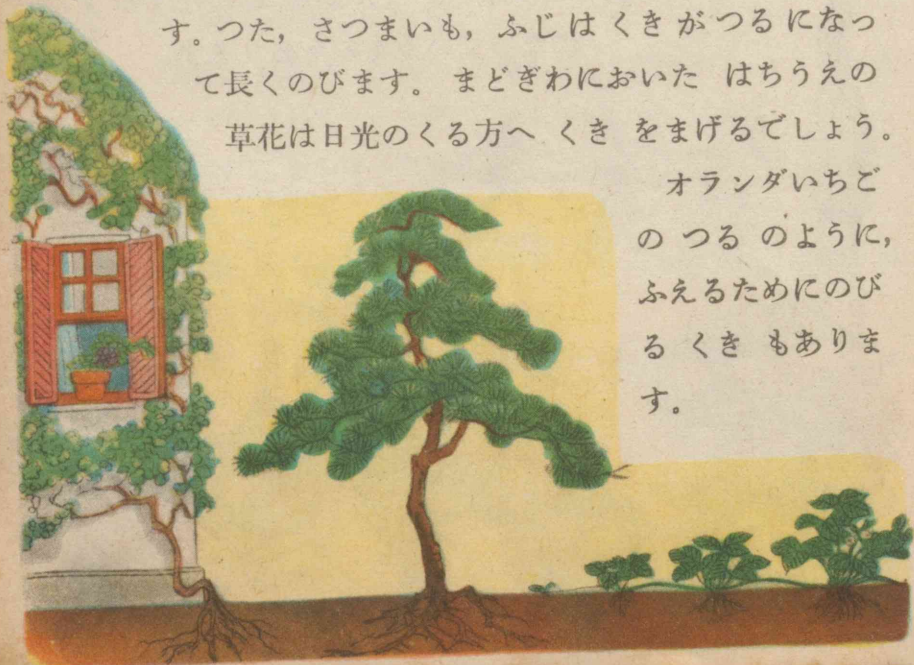 す。つた，さつまいも，ふじは くき がつる になっ
て長くのびます。 まどぎわにおいた はちうえの
草花は日光のくる方へ くき をまげるでしょう。
オランダいちご
の つる のように，
ふえるためにのび
る くき もありま
す。